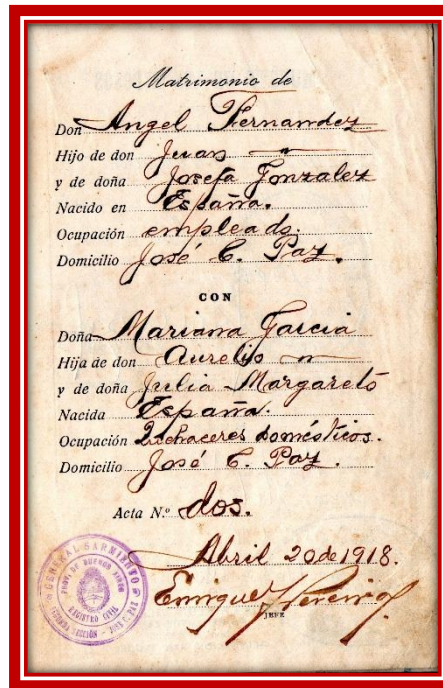 Matrimonio de
Don Angel Fernandez
Hijo de don Juan "
y de doña Josefa Gonzalez
Nacido en España.
Ocupación empleado.
Domicilio José C. Paz.
CON
Doña Mariana Garcia
Hija de don Aurelio "
y de doña Julia Margaretó
Nacida España.
Ocupación Quehaceres domésticos.
Domicilio José C. Paz.
Acta N.º dos.
Abril 20 de 1918.
Enrique Pereira
JEFE
GENERAL SARMIENTO
PROV. DE BUENOS AIRES
REGISTRO CIVIL
SEGUNDA SECCIÓN - JOSE C. PAZ